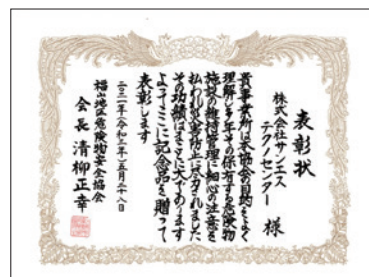 表彰状
株式会社サンエス
テクノセンター 様
貴事業所は本協会の目的をよく
理解し多年その保有する危険物
施設の維持管理に細心の注意を
払われ災害防止に尽力されました
その功績はまことに大であります
よってここに記念品を贈って
表彰します
二〇二一年(令和三年)五月二十八日
福山地区危険物安全協会
会長 清柳正幸